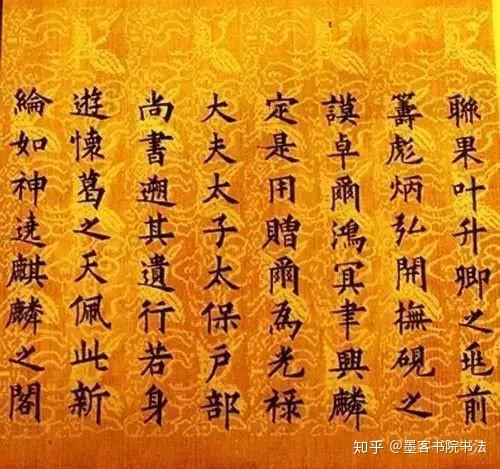 聯果叶升卿之兆前
籌彪炳弘開撫硯之
謨卓爾鴻冥聿興麟
定是用贈爾為光禄
大夫太子太保戶部
尚書遡其遺行若身
遊懷葛之天佩此新
綸如神逹麒麟之閣
知乎 @墨客书院书法